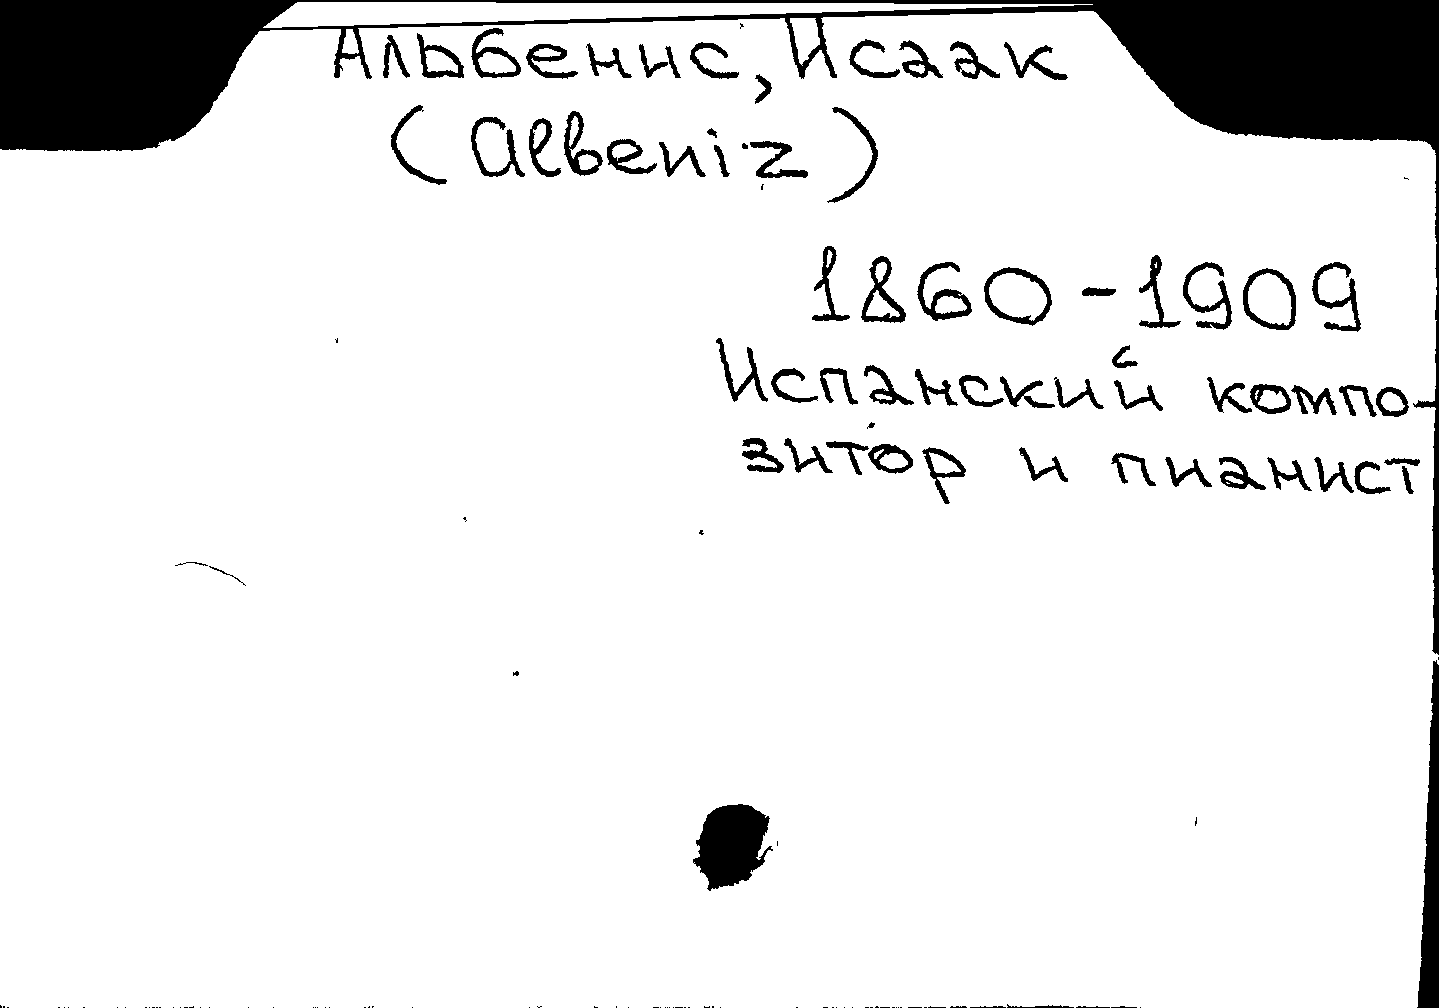 Альбенис, Исаак
(Albeniz)
1860-1909
Испанский компо-
зитор и пианист